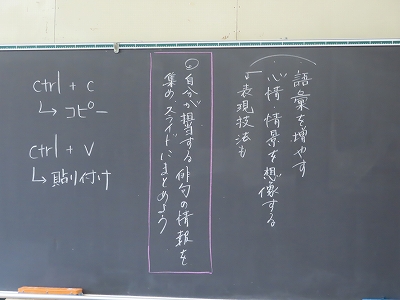 語彙を増やす
・心情・情景を想像する
↳表現技法も
◎自分が担当する俳句の情報を
集め、スライドにまとめよう
ctrl + c
↳コピー
ctrl + v
↳貼り付け